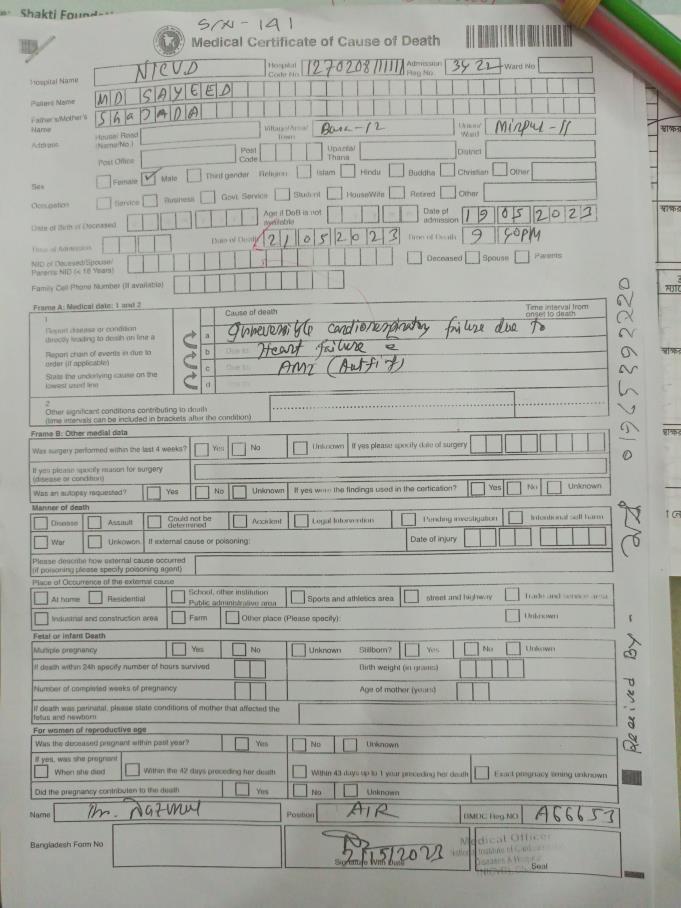 Shakti Foundat
S/N - 141
Medical Certificate of Cause of Death
Hospital Name NICVD Hospital Code No. Admission Reg No. 3422 Ward No
Patient Name MD SAYEED
Father's/Mother's Name ShaJADA
Address House/ Road (Name/No.) Village/Area/ Town -12 Union/ Ward Mirpur-11
Post Office Post Code Upazila/ Thana District
Sex Female Male Third gender Religion Islam Hindu Buddha Christian Other
Occupation Service Business Govt. Service Student HouseWife Retired Other
Date of Birth of Deceased Age if DoB is not available Date of admission 19 05 2023
Time of Admission Date of Death 21 05 2023 Time of Death 9 50PM
NID of Deceased/Spouse/ Parents NID (< 18 Years) Deceased Spouse Parents
Family Cell Phone Number (if available)
Frame A: Medical date: 1 and 2
1 Cause of death Time interval from onset to death
Report disease or condition directly leading to death on line a
a Irreversible cardiorespiratory failure due to
Report chain of events in due to order (if applicable)
b Due to Heart failure
State the underlying cause on the lowest used line
c Due to AMI
d
2
Other significant conditions contributing to death
(time intervals can be included in brackets after the condition)
Frame B: Other medial data
Was surgery performed within the last 4 weeks? Yes No Unknown If yes please specify date of surgery
If yes please specify reason for surgery
(disease or condition)
Was an autopsy requested? Yes No Unknown If yes were the findings used in the certication? Yes No Unknown
Manner of death
Disease Assault Could not be determined Accident Legal Intervention Pending investigation Intentional self harm
War Unkowon If external cause or poisoning: Date of injury
Please describe how external cause occurred
(if poisoning please specify poisoning agent)
Place of Occurrence of the external cause
At home Residential School, other institution Public administrative area Sports and athletics area street and highway Trade and service area
Industrial and construction area Farm Other place (Please specify): Unknown
Fetal or infant Death
Multiple pregnancy Yes No Unknown Stillborn? Yes No Unkown
If death within 24h specify number of hours survived Birth weight (in grams)
Number of completed weeks of pregnancy Age of mother (years)
If death was perinatal, please state conditions of mother that affected the
fetus and newborn
For women of reproductive age
Was the deceased pregnant within past year? Yes No Unknown
If yes, was she pregnant
When she died Within the 42 days preceding her death Within 43 days up to 1 year preceding her death Exact pregnacy timing unknown
Did the pregnancy contributen to the death Yes No Unknown
Name Dr. Nazmul Position AIR BMDC Reg.NO A66653
Bangladesh Form No
21/5/2023
Signature With Date
Medical Officer
Seal
Received By - 01965392220